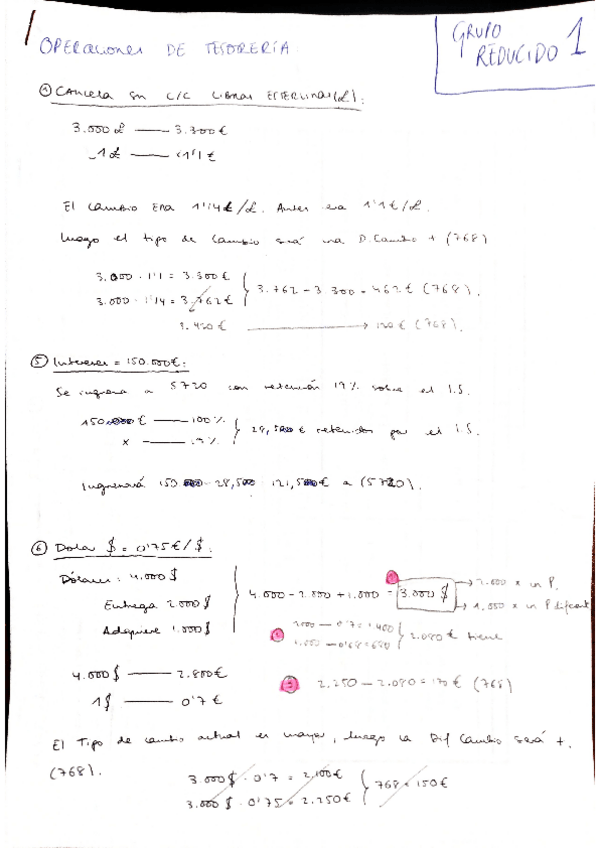 OPERACIONES DE TESORERÍA
GRUPO REDUCIDO 1
① CANCELA su C/C LIBRAS ESTERLINAS (£):
3.000 £ —— 3.300 €
1 £ —— 1'1 €
El cambio ERA 1'14 €/£. Antes era 1'1 €/£.
luego el tipo de cambio será una D. Cambio + (768)
3.000 · 1'1 = 3.300 €
3.000 · 1'14 = 3,762 €
3.762 - 3.300 = 462 € (768).
3.420 € → 120 € (768).
⑤ Intereses = 150.000 €:
Se ingresa a 5720 con retención 19% sobre el I.S.
150.000 € —— 100%
x —— 19%
28,500 € retenidos por el I.S.
Ingresará 150 - 28,500 = 121,500 € a (5720).
⑥ Dolar $ = 0'75 €/$.
Dólares: 4.000 $
Entrega 2.000 $
Adquiere 1.000 $
4.000 - 2.000 + 1.000 = 3.000 $
→ 2.000 x un P.
→ 1.000 x un P diferente
2.000 — 0'7 = 1.400
1.000 — 0'68 = 680
2.080 € tiene
4.000 $ —— 2.800 €
1 $ —— 0'7 €
2.250 - 2.080 = 170 € (768)
El Tipo de cambio actual es mayor, luego la Dif Cambio será +.
(768).
3.000 $ · 0'7 = 2,100 €
3.000 $ · 0'75 = 2.250 €
768 = 150 €